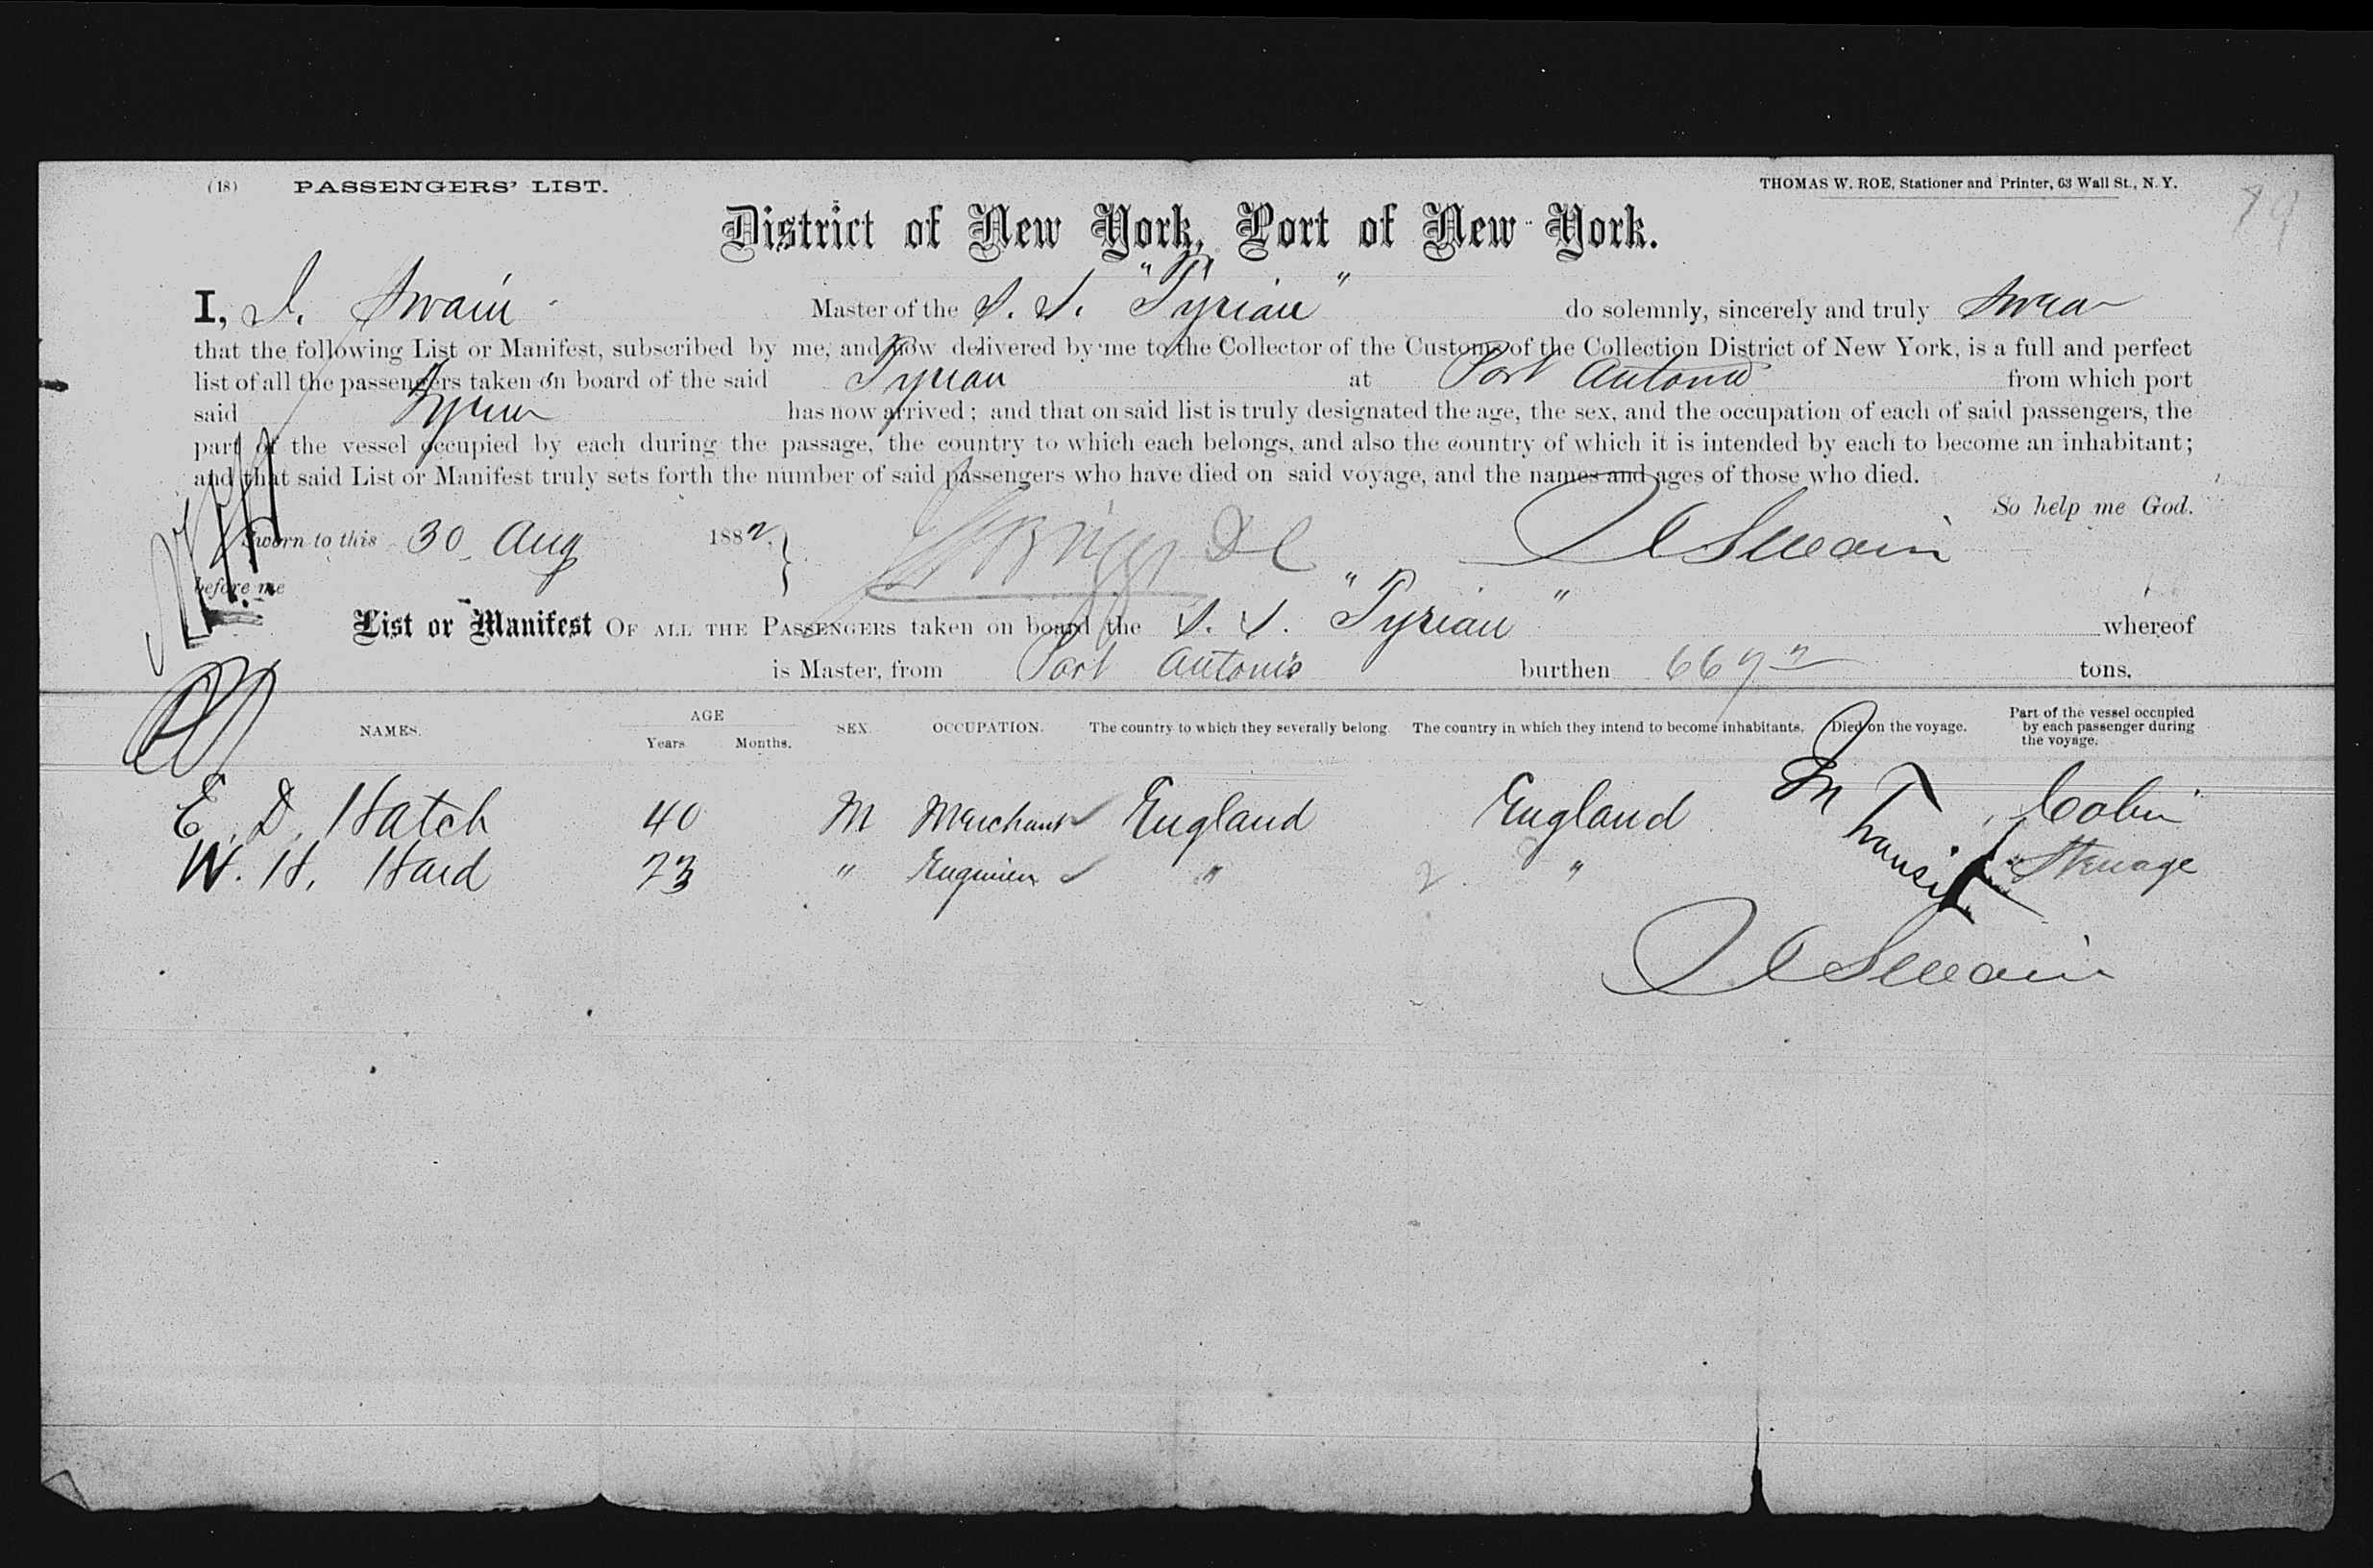 (18) PASSENGERS' LIST. THOMAS W. ROE, Stationer and Printer, 63 Wall St., N. Y.
79
District of New York, Port of New York.
I, J. Swain Master of the S. S. "Tyrian" do solemnly, sincerely and truly swear
that the following List or Manifest, subscribed by me, and now delivered by me to the Collector of the Customs of the Collection District of New York, is a full and perfect
list of all the passengers taken on board of the said Tyrian at Port Antonio from which port
said Tyrian has now arrived; and that on said list is truly designated the age, the sex, and the occupation of each of said passengers, the
part of the vessel occupied by each during the passage, the country to which each belongs, and also the country of which it is intended by each to become an inhabitant;
and that said List or Manifest truly sets forth the number of said passengers who have died on said voyage, and the names and ages of those who died.
So help me God.
Sworn to this 30 Aug 1882 } DC Swain
before me
List or Manifest OF ALL THE PASSENGERS taken on board the S. S. "Tyrian" whereof
is Master, from Port Antonio burthen tons.
NAMES. AGE Years Months. SEX. OCCUPATION. The country to which they severally belong. The country in which they intend to become inhabitants. Died on the voyage. Part of the vessel occupied by each passenger during the voyage.
E. D. Hatch 40 M Merchant England England In Transit Cabin
W. H. Hard 23 " Engineer " " Steerage
Swain